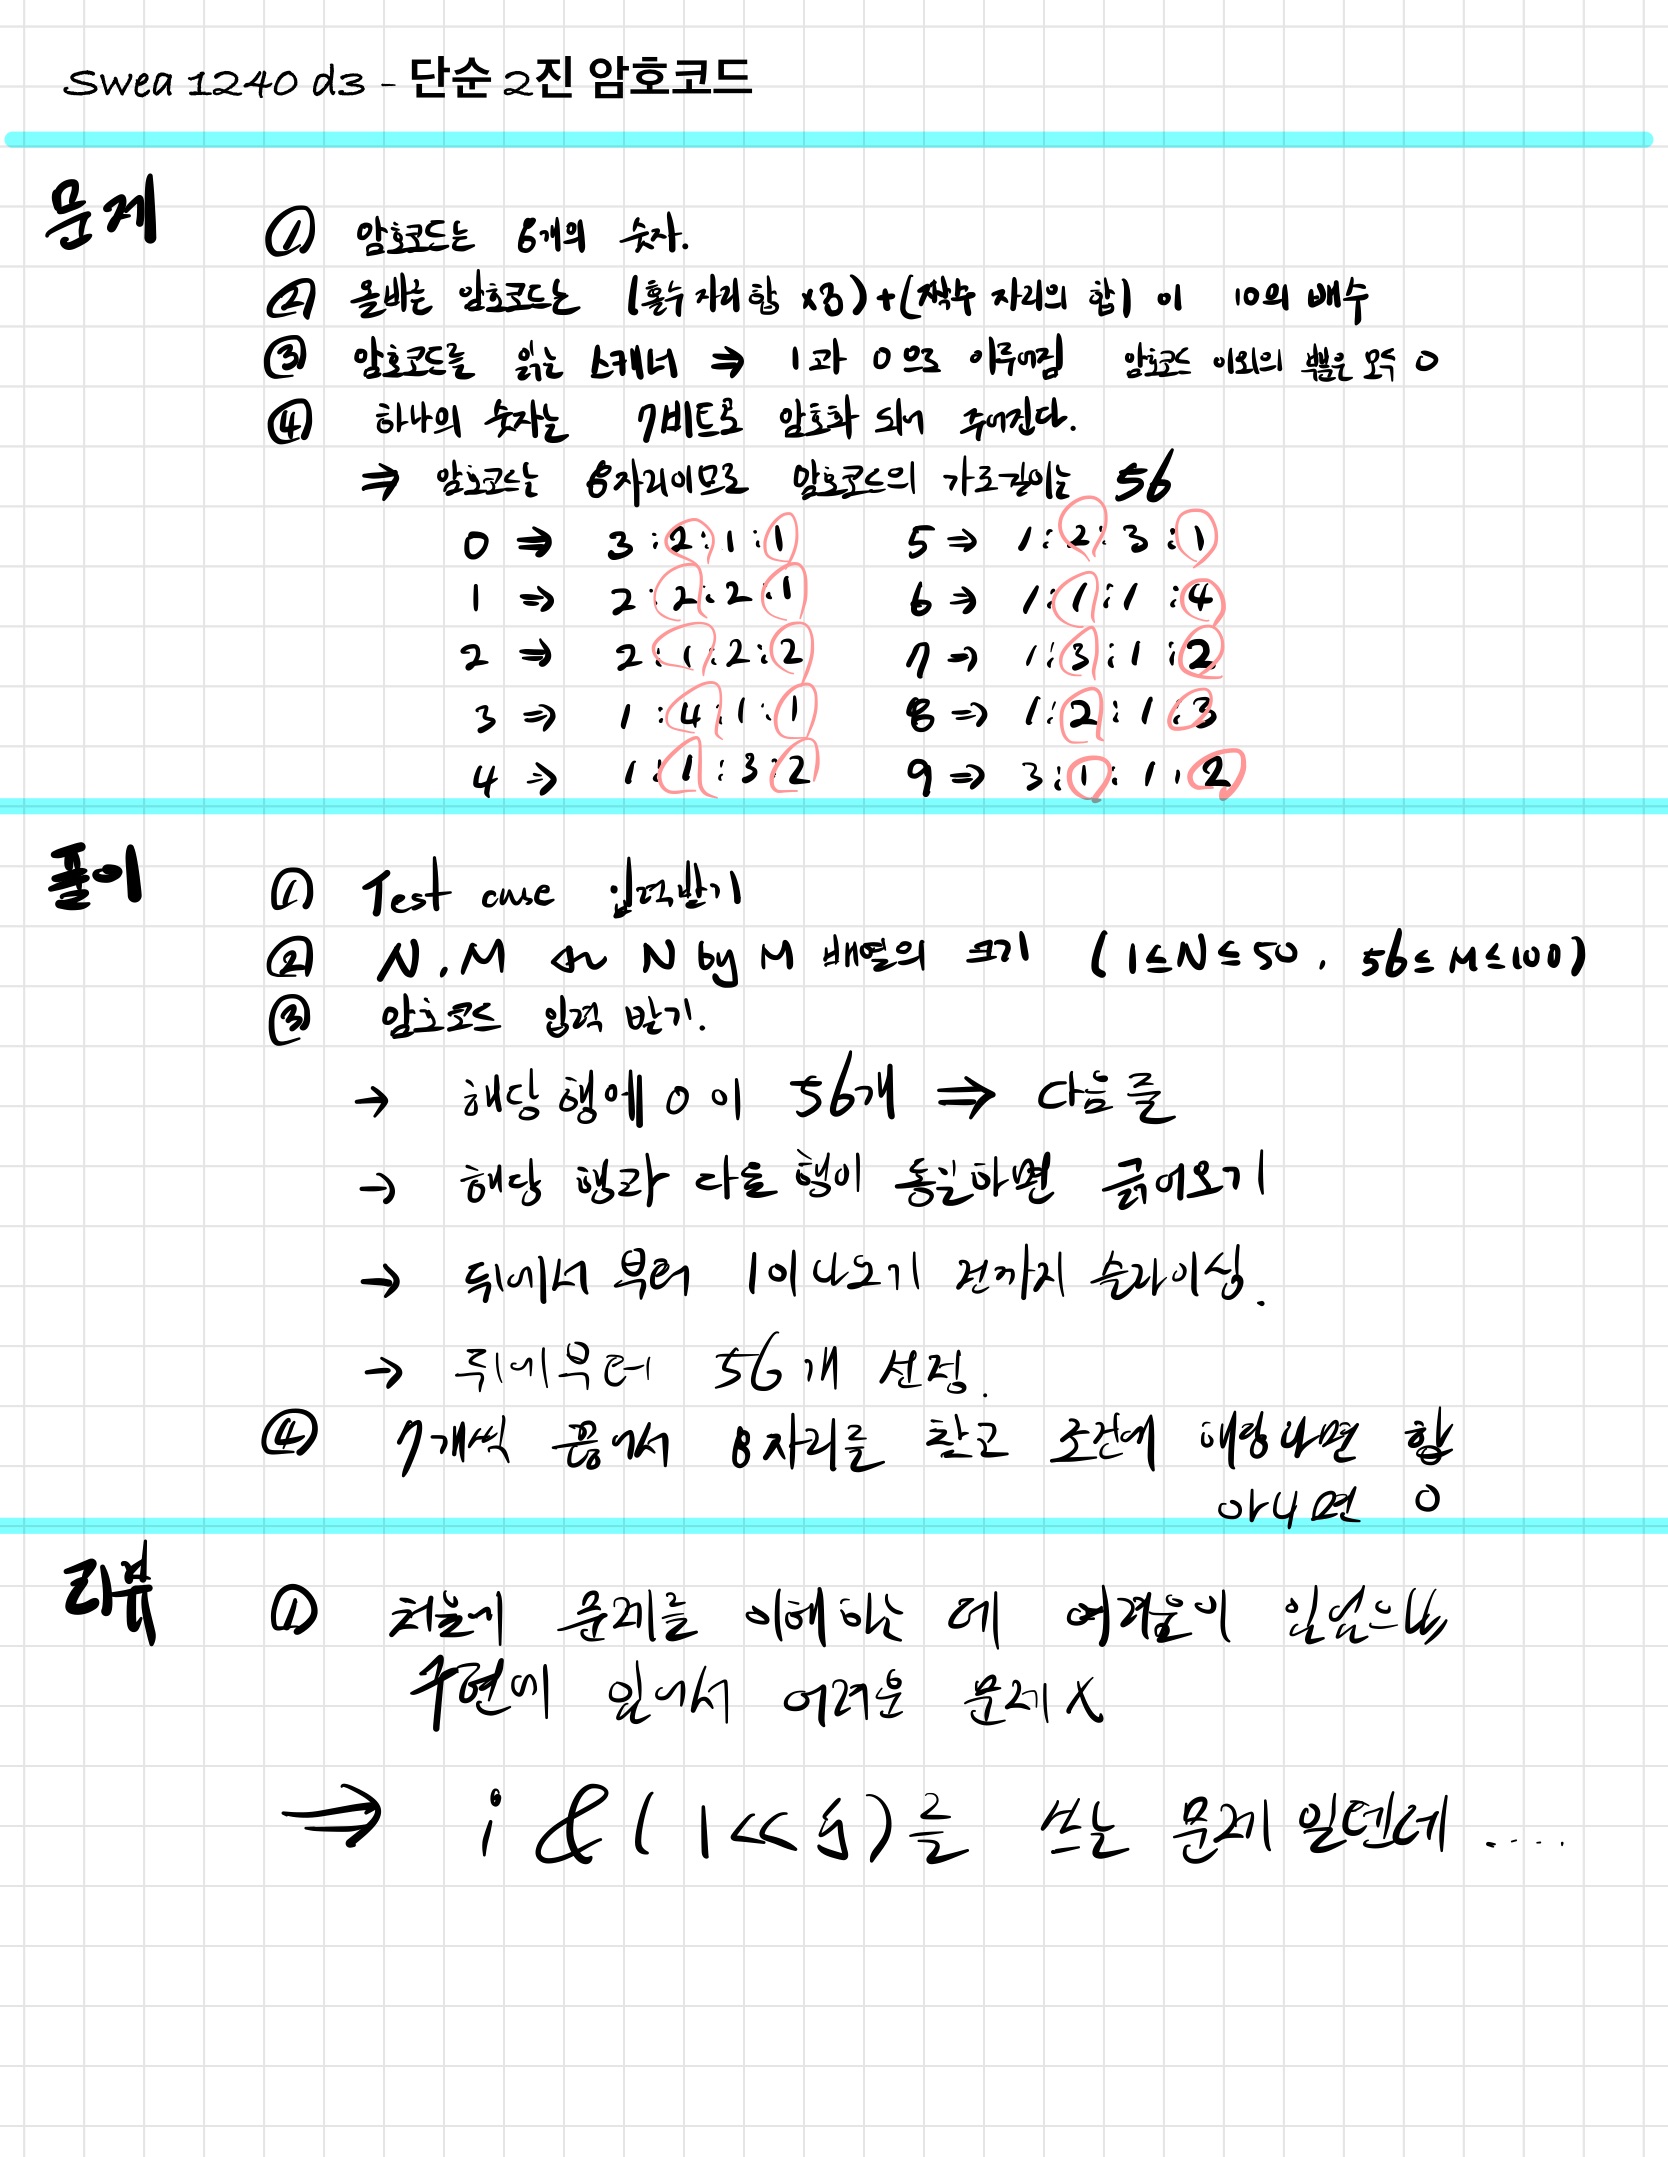 Swea 1240 d3 - 단순 2진 암호코드
문제
① 암호코드는 8개의 숫자.
② 올바른 암호코드는 (홀수 자리 합 x3)+(짝수 자리의 합) 이 10의 배수
③ 암호코드를 읽는 스캐너 ⇒ 1과 0으로 이루어짐 암호코드 이외의 부분은 모두 0
④ 하나의 숫자는 7비트로 암호화 되어 주어진다.
⇒ 암호코드는 8자리이므로 암호코드의 가로길이는 56
0 ⇒ 3:2:1:1 5 ⇒ 1:2:3:1
1 ⇒ 2:2:2:1 6 ⇒ 1:1:1:4
2 ⇒ 2:1:2:2 7 ⇒ 1:3:1:2
3 ⇒ 1:4:1:1 8 ⇒ 1:2:1:3
4 ⇒ 1:1:3:2 9 ⇒ 3:1:1:2
풀이
① Test case 입력받기
② N, M N by M 배열의 크기 (1≤N≤50, 56≤M≤100)
③ 암호코드 입력 받기.
→ 해당 행에 0이 56개 ⇒ 다음 줄
→ 해당 행과 다음 행이 동일하면 긁어오기
→ 뒤에서 부터 1이 나오기 전까지 슬라이싱.
→ 뒤에부터 56개 선정.
④ 7개씩 끊어서 8자리를 찾고 조건에 해당하면 합
아니면 0
리뷰
① 처음에 문제를 이해하는 데 어려움이 있었으나
구현에 있어서 어려운 문제 X
⇒ i & (1<<j)를 쓰는 문제일텐데 .....